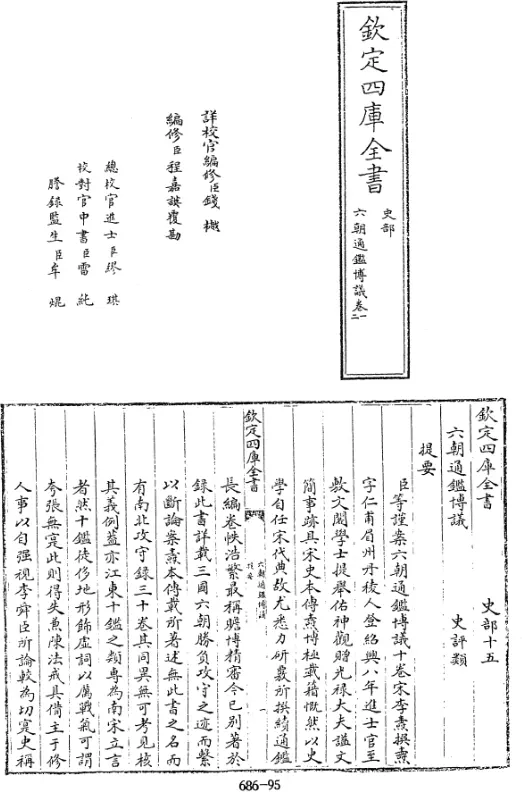 欽定四庫全書
史部
六朝通鑑博議卷一二
詳校官編修臣錢樾
編修臣程嘉謨覆勘
總校官進士臣繆琪
校對官中書臣雷純
謄錄監生臣牟焜
欽定四庫全書
史部十五
六朝通鑑博議
史評類
提要
臣等謹案六朝通鑑博議十卷宋李燾撰燾
字仁甫眉州丹稜人登紹興八年進士官至
敷文閣學士提舉佑神觀贈光禄大夫諡文
簡事蹟具宋史本傳燾博極載籍慨然以史
學自任宋代典故尤悉力研覈所撰續通鑑
欽定四庫全書
六朝通鑑博議
提要
一
長編卷帙浩繁最稱贍博精審今已别著於
録此書詳載三國六朝勝負攻守之迹而繫
以斷論案燾本傳載所著述無此書之名而
有南北攻守録三十卷其同異無可考見核
其義例葢亦江東十鑑之類專為南宋立言
者然十鑑徒侈地形飾虚詞以厲戰氣可謂
夸張無寔此則得失兼陳法戒具備主于修
人事以自强視李舜臣所論較為切寔史稱
686-95